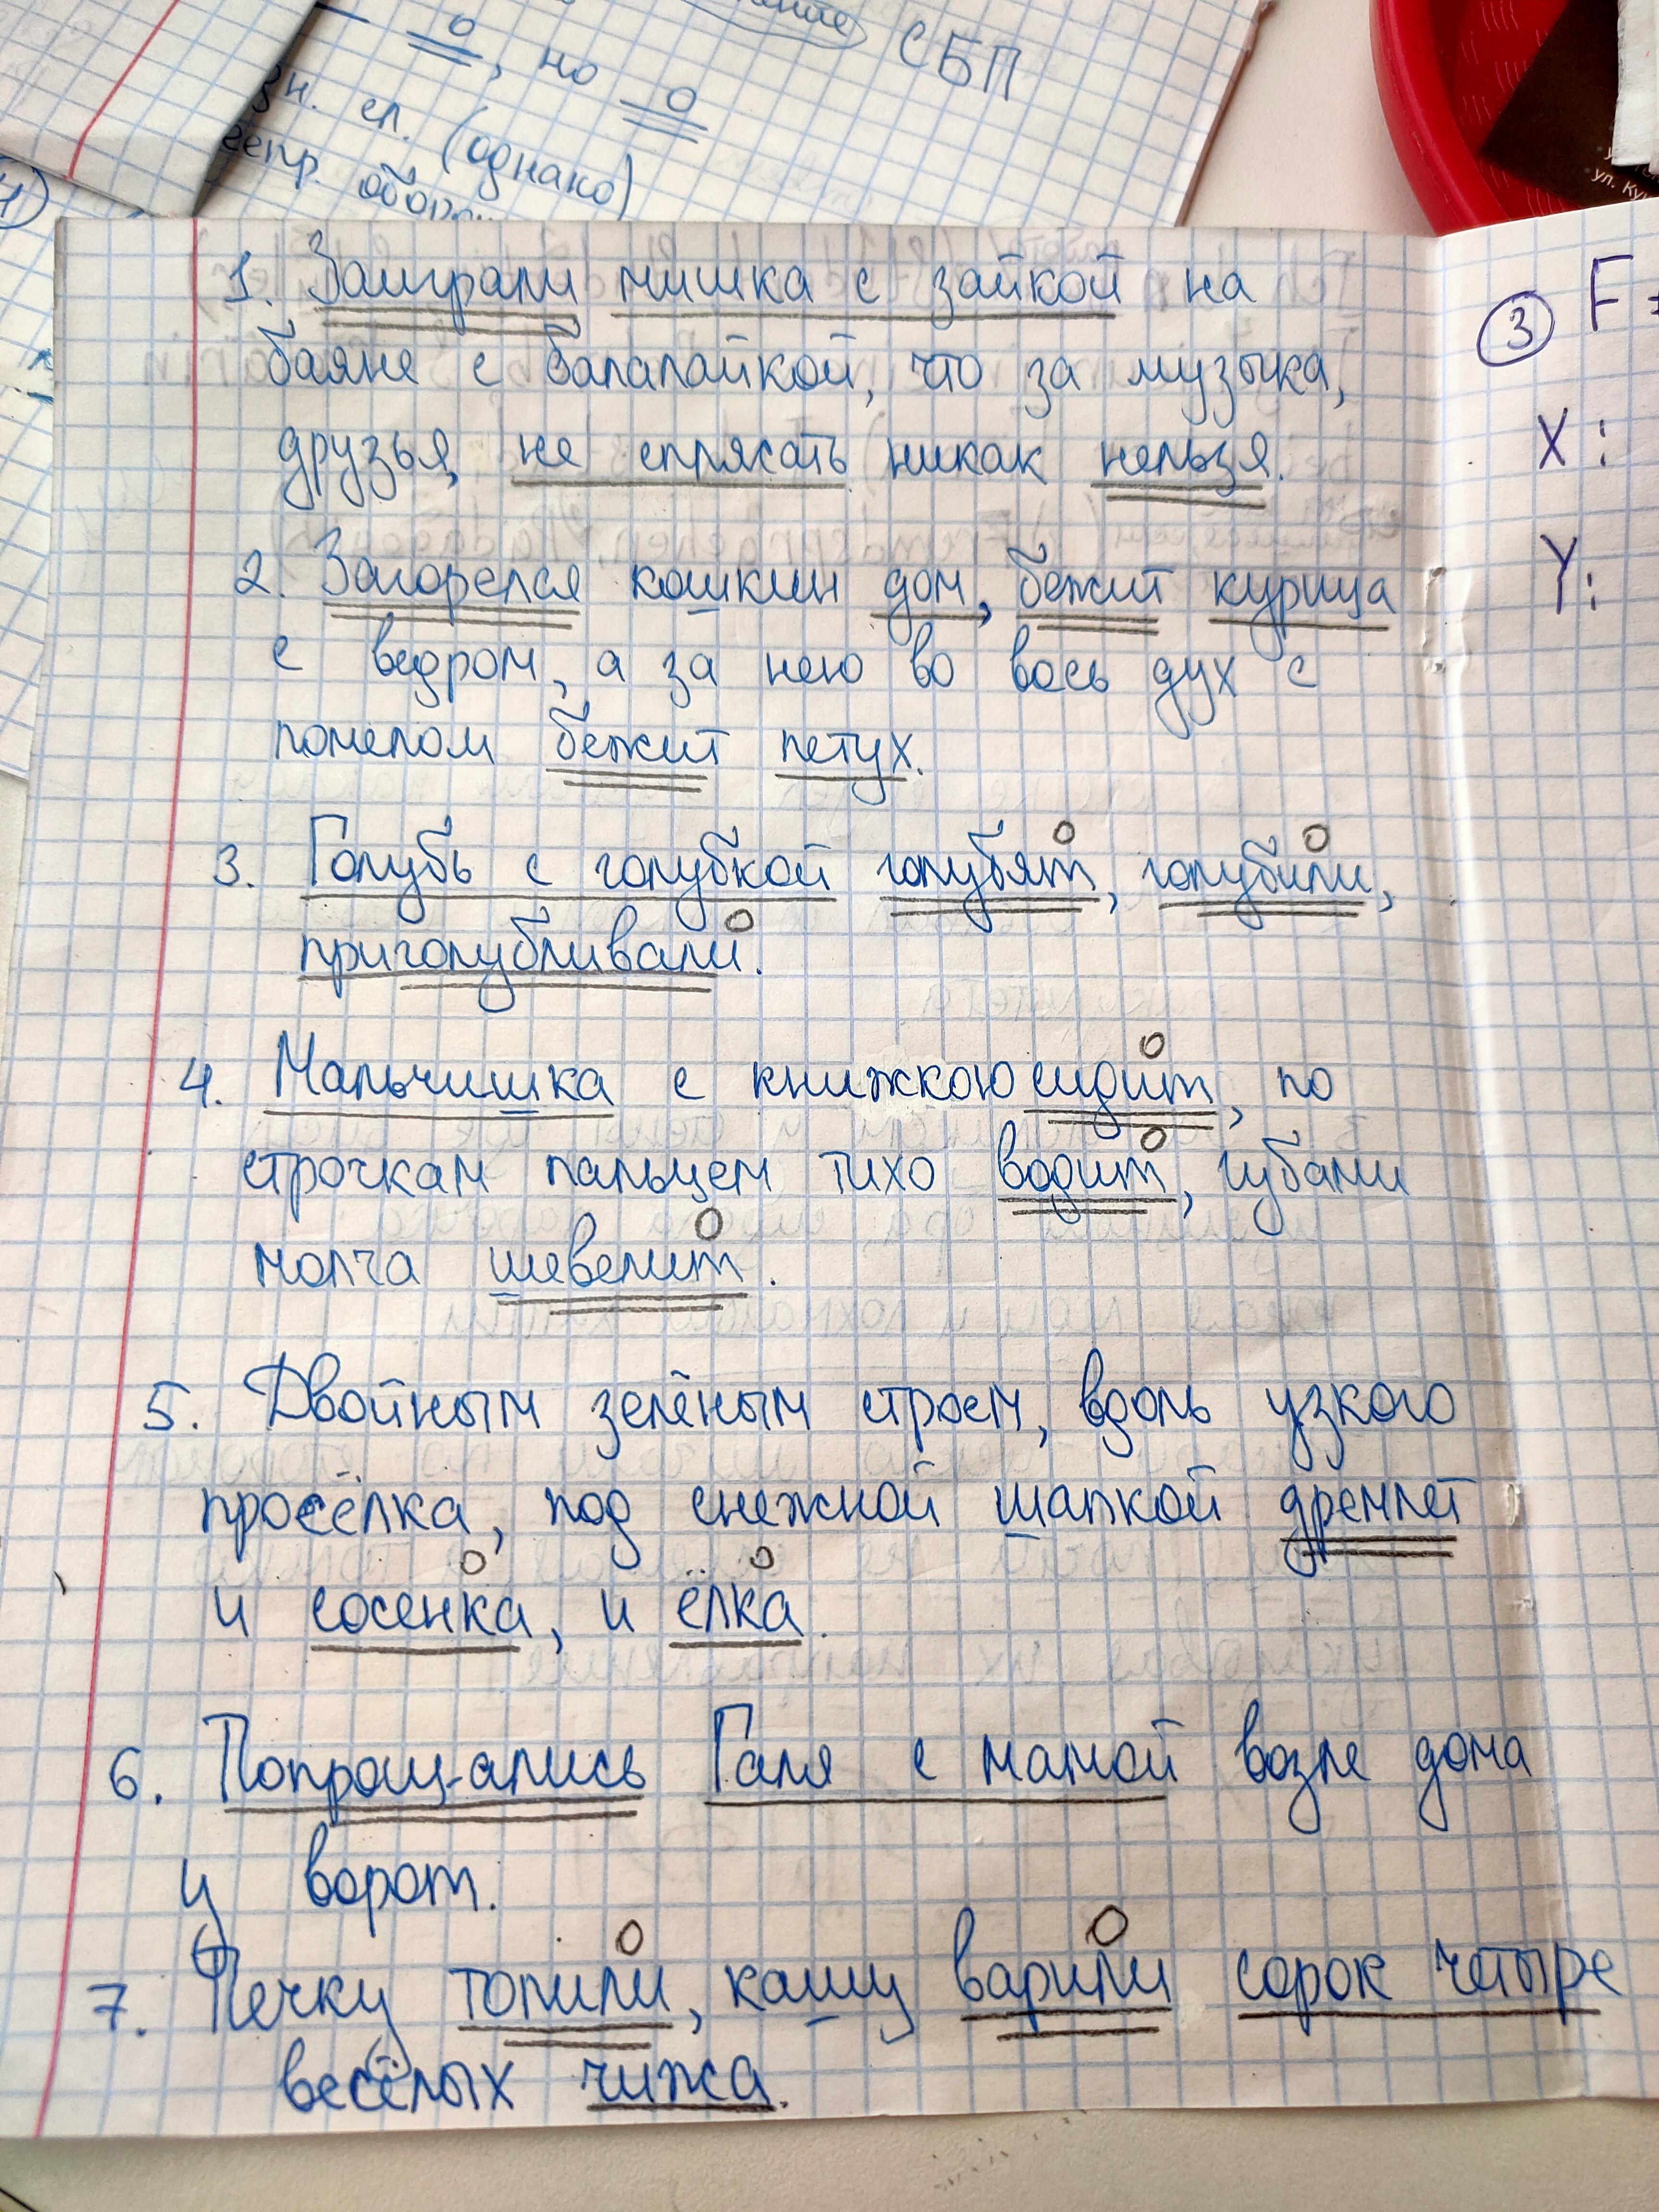 СБП
, но
зн. сл. (однако)
1. Заиграли мишка с зайкой на
баяне с балалайкой, что за музыка,
друзья, не сплясать никак нельзя.
2. Загорелся кошкин дом, бежит курица
с ведром, а за нею во вось дух с
помелом бежит петух.
3. Голубь с голубкой голубят, голубили,
приголубливали.
4. Мальчишка с книжкою сидит, по
строчкам пальцем тихо водит, губами
молча шевелит.
5. Двойным зелёным строем, вдоль узкого
просёлка, под снежной шапкой дремлет
и сосенка, и ёлка.
6. Попрощ-ались Галя с мамой возле дома
у ворот.
7. Печку топили, кашу варили сорок четыре
весёлых чижа.
3 F =
X:
Y:
ул. Ку